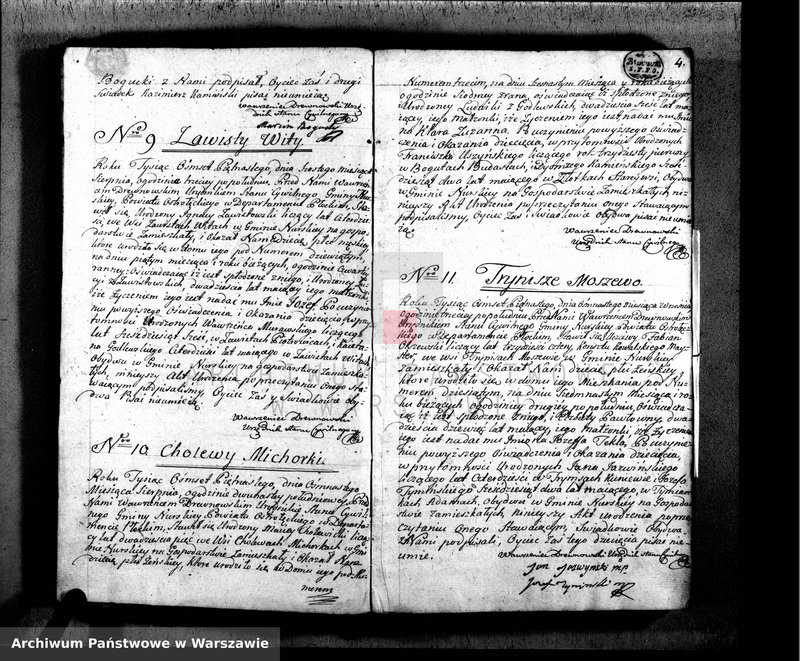 Bogucki z Nami podpisał, Oyciec zaś i drugi
świadek Kazimierz Kamiński pisać nieumieią.
Wawrzeniec Drewnowski Urz-
ędnik Stanu Cywilnego
Marcin Bogucki
Nro 9 Zawisty Wity.
Roku Tysiąc Ośmset Piętnastego, dnia Szóstego miesiąca
Sierpnia, o godzinie trzeciey popołudniu, Przed Nami Wawrzeń-
cem Drewnowskim Urzędnikiem Stanu Cywilnego Gminy Nur-
skiey, Powiatu Ostrołęckiego w Departamencie Płockim, Sta-
wił się Urodzony Ignacy Zawistowski liczący lat czterdzie-
ści, we Wsi Zawistach Witkach w Gminie Nurskiey na gospo-
darstwie Zamieszkały, i okazał Nam Dziecię płci męskiey,
które urodziło się w domu iego pod Numerem dziewiątym,
na dniu piątym miesiąca i roku bieżących, o godzinie czwartey
zranney: Oświadczaiąc iż iest spłodzone z niego, i Urodzoney
Zawistowskich, dwadzieścia lat maiącey iego małżonki,
że życzeniem iego iest nadać mu Imie Józef. Po uczynie-
niu powyższego Oświadczenia i Okazaniu dziecięcia w przy-
tomności Urodzonych Wawrzeńca Murawskiego liczącego
lat sześdziesiąt sześć, w Zawistach Piotrowicach, i Kaieta-
na Godlewskiego czterdzieści lat maiącego w Zawistach Witkach
Obydwu w Gminie Nurskiey na gospodarstwie Zamieszka-
łych, ninieyszy Akt Urodzenia po przeczytaniu onego Sta-
waiącym podpisaliśmy, Oyciec zaś y świadkowie oby-
dwa Pisać nieumieią.
Wawrzeniec Drewnowski
Urzędnik Stanu Cywilnego
Nro 10 Cholewy Michorki.
Roku Tysiąc Ośmset Piętnastego, dnia Ośmnastego
Miesiąca Sierpnia, o godzinie dwunastey południowey, Przed
Nami Wawrzeńcem Drewnowskim Urzędnikiem Stanu Cywil-
nego Gminy Nurskiey Powiatu Ostrołęckiego w Departa-
mencie Płockim, Stawił się Urodzony Maciey Cholewicki liczą-
cy lat dwadzieścia pięć we Wsi Cholewach Michorkach w Gmi-
nie Nurskiey na Gospodarstwie Zamieszkały i Okazał Nam
Dziecie płci żeńskiey, które urodziło się w Domu iego pod Nu-
merem
4
Numerem trzecim, na dniu Szesnastym Miesiąca y roku bieżących
o godzinie siódmey zrana, oświadczaiąc iż iest spłodzone z niego, y
Urodzoney Ludwiki z Godlewskich, dwadzieścia sześć lat ma-
iącey, iego Małżonki, że Życzeniem iego iest nadać mu Imio-
na Klara Zuzanna. Po uczynieniu powyższego oświad-
czenia i Okazaniu dziecięcia, w przytomności Urodzonych
Franciszka Uszyńskiego liczącego rok trzydziesty pierwszy
w Bogutach Rubiestach, i Szymona Kamińskiego Sześ-
dziesiąt dwa lat maiącego w Złotkach Starejwsi, Obydwu
w Gminie Nurskiey na Gospodarstwie Zamieszkałych, ni-
nieyszy Akt Urodzenia po przeczytaniu onego Stawaiącym
podpisaliśmy, Oyciec zaś i świadkowie obydwa pisać nieumie-
ią.
Wawrzeniec Drewnowski
Urzędnik Stanu Cywilnego
Nro 11. Trynisze Moszewo.
Roku Tysiąc Ośmset Piętnastego, dnia Ośmnastego Września
o godzinie trzeciey po południu, Przed Nami Wawrzeńcem Drewnowskim
Urzędnikiem Stanu Cywilnego Gminy Nurskiey Powiatu Ostrołęc-
kiego w Departamencie Płockim, Stawił się Fabian
liczący lat trzydzieści cztery,
we wsi Tryniszach Moszewie w Gminie Nurskiey
zamieszkały i Okazał Nam dziecie płci Żeńskiey
które urodziło się w domu iego Mieszkania pod Nu-
merem dziesiątym, na dniu Siedmnastym Miesiąca i ro-
ku bieżących o godzinie drugiey po południu Oświadcza-
iąc iż iest spłodzone z niego, i Pawłowny, dwa-
dzieścia dziewięć lat maiącey iego małżonki, że Życzeniem
iego iest nadać mu Imiona Józefa Tekla, Po uczynie-
niu powyższego Oświadczenia i Okazaniu dziecięcia,
w przytomności Urodzonych Jana Jaźwińskiego
liczącego lat czterdzieści w Tymiankach Kunewie i Józefa
Tymińskiego Sześdziesiąt dwa lat maiącego, w Tymian-
kach Adamach, Obydwu w Gminie Nurskiey na Gospodar-
stwie zamieszkałych, Ninieyszy Akt Urodzenia po prze-
czytaniu Onego Stawaiącym, świadkowie Obydwa
z Nami podpisali, Oyciec zaś tego dziecięcia pisać nie-
umie.
Wawrzeniec Drewnowski Urzędnik Stanu Cywilnego
Jan Jaźwynski mp.
Józef Tyminski mp
Archiwum Państwowe w Warszawie